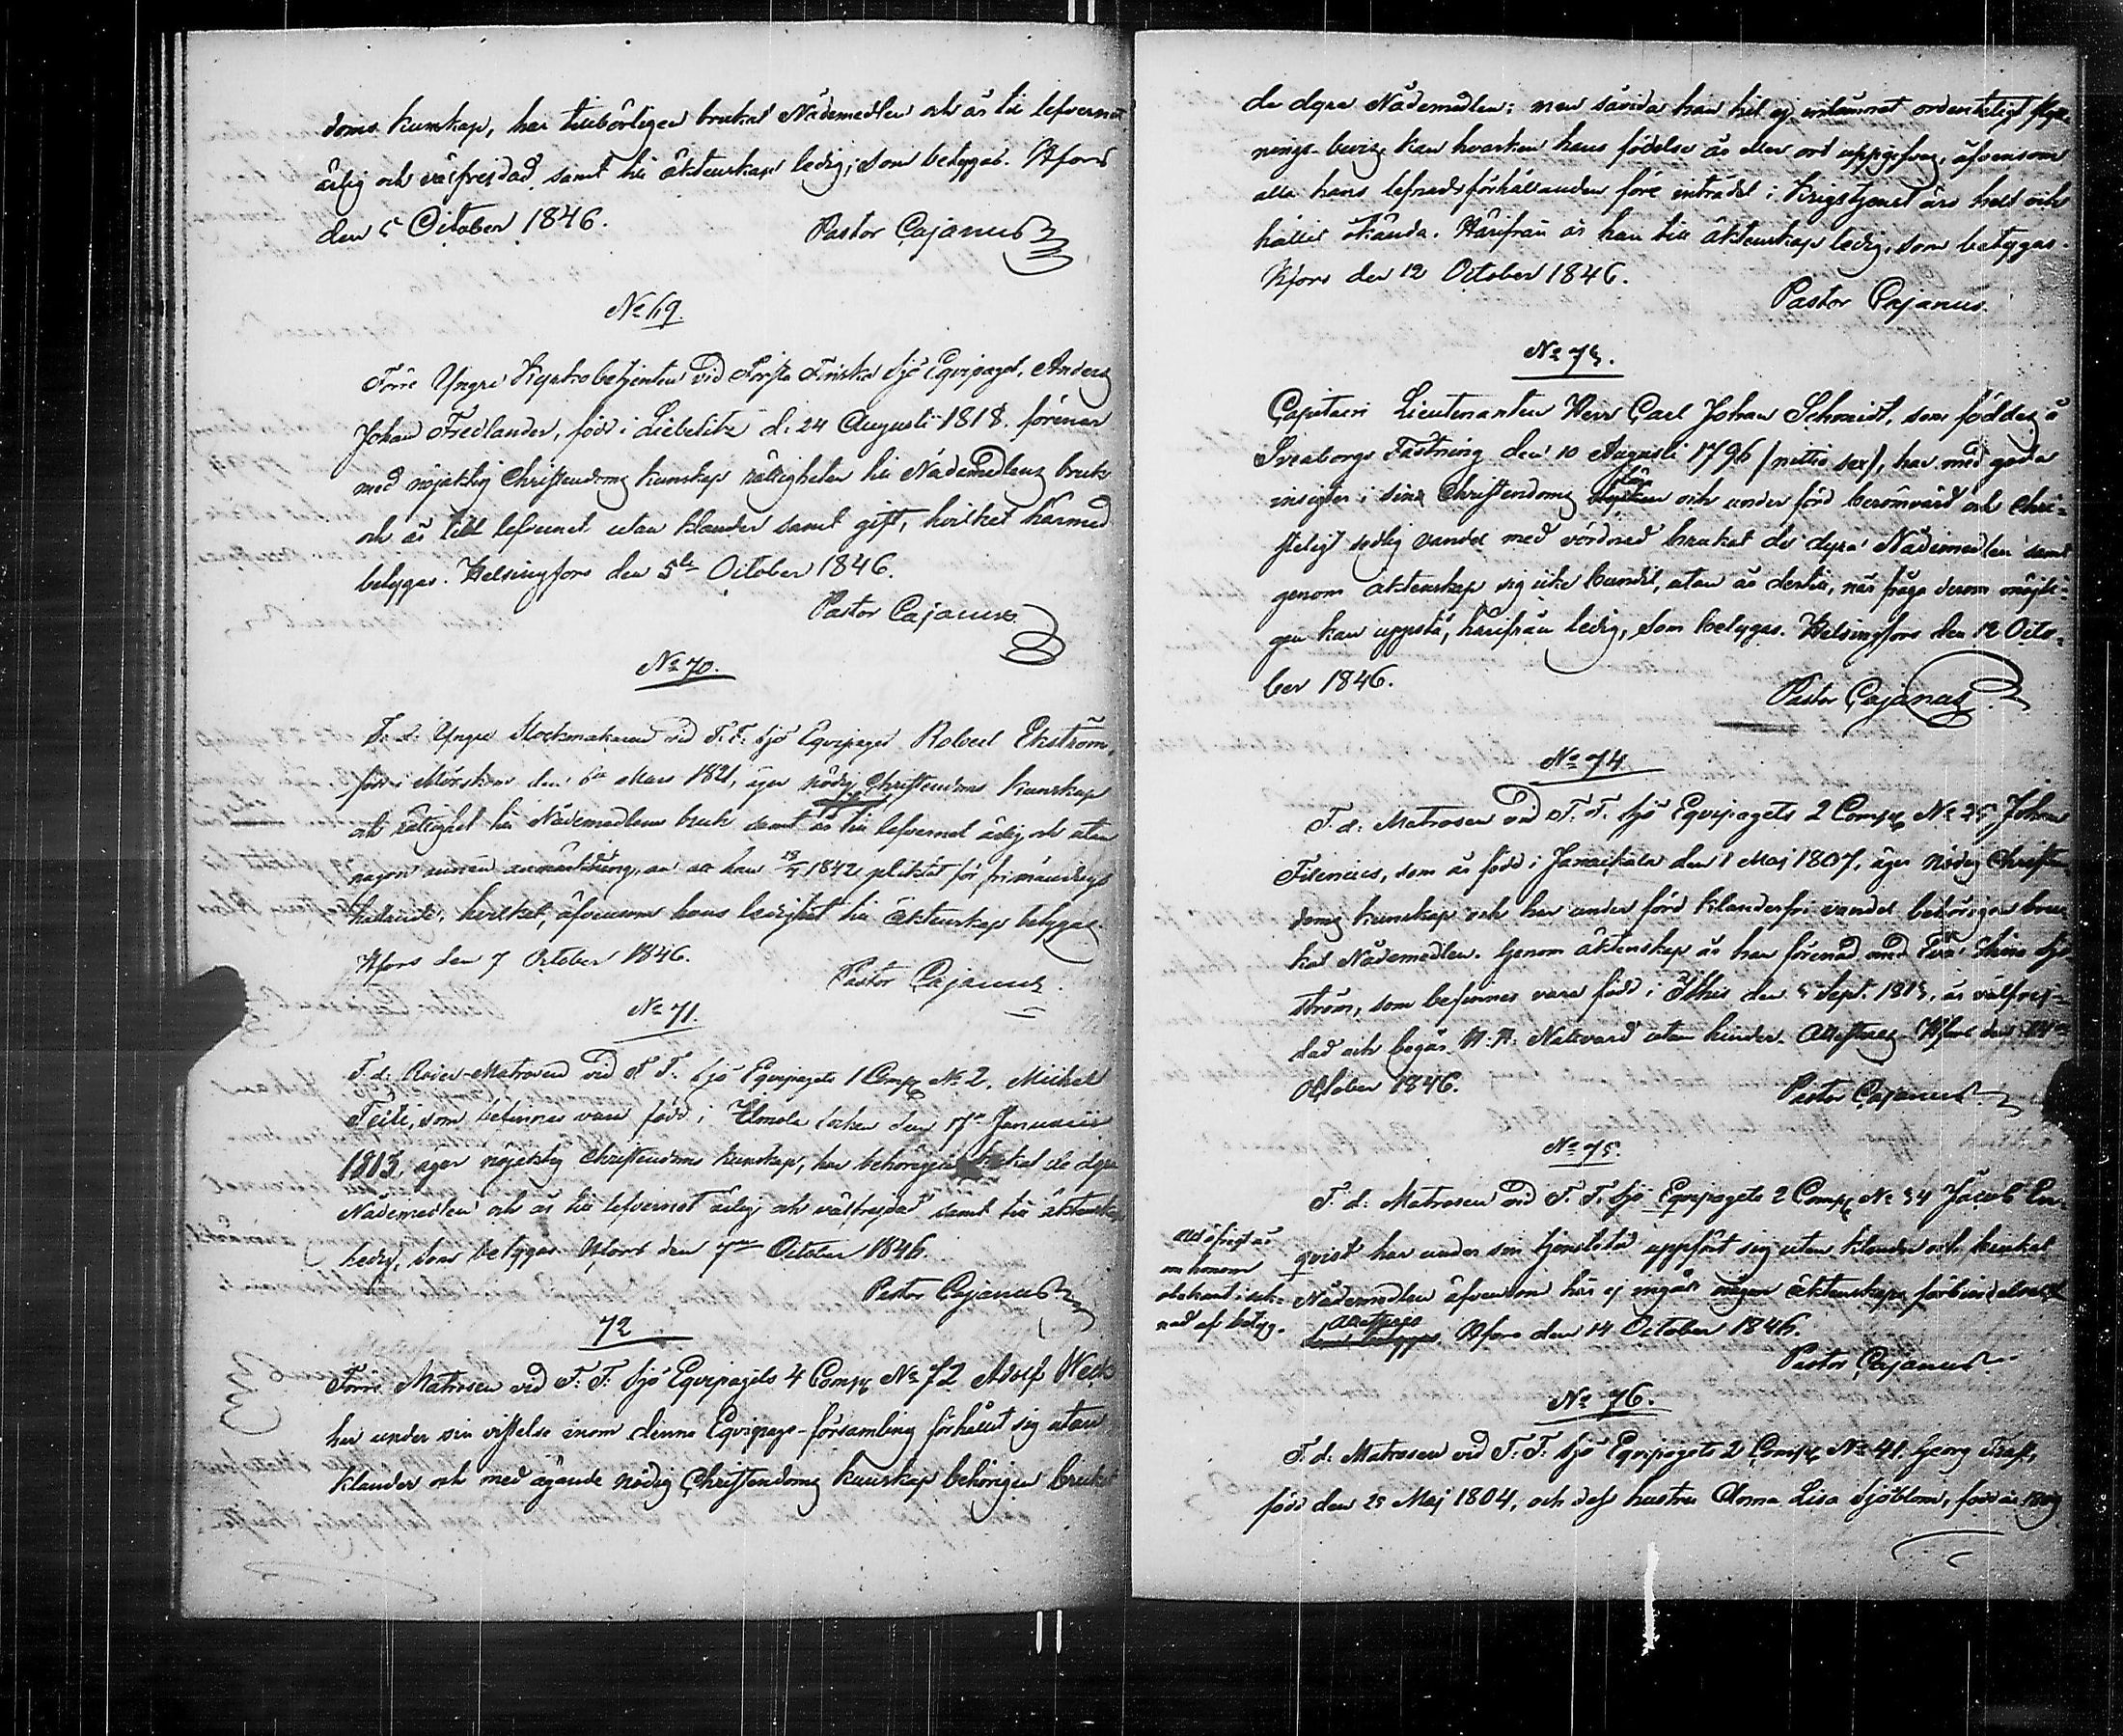 doms kunskap, har tillbörligen brukat Nådemedlen och är till lefvernet
ärlig och välfrejdad samt till äktenskap ledig; som betygas. Hfors
den 5 October 1846.
Pastor Cajanus
No 69.
Förre Yngre Skeppsbetjenten vid Första Finska Sjö Equipaget, Anders
Johan Fredlander, född i Liebelitz d. 24 Augusti 1818. förenar
med nöjaktig Christendoms kunskap rättigheten till Nådemedlens bruk
och är till lefvernet utan klander samt gift, hvilket härmed
betygas. Helsingfors den 5te October 1846.
Pastor Cajanus.
No 70.
F. d. Yngre Blockmakaren vid F. F. Sjö Equipaget Robert Ekström,
född i Mörskom den 6te Mars 1821, äger nödig Christendoms kunskap
och rättighet till Nådemedlens bruk samt är till lefvernet ärlig och utan
någon annan anmärkning, än att han 1842 pliktat för
hvilket, äfvensom hans ledighet till äktenskap betygas
Hfors den 7 October 1846.
Pastor Cajanus.
No 71.
F. d. Matrosen vid F. F. Sjö Equipagets 1 Comp. No 2. Michel
Teiti, som befinnes vara född i Elimä socken den 17de Januarii
1803, äger nöjaktig Christendoms kunskap, har behörigen brukat de dyra
Nådemedlen och är till lefvernet ärlig och välfrejdad samt till äktenskap
ledig, som betygas Hfors den 7de October 1846.
Pastor Cajanus
72
Förre Matrosen vid F. F. Sjö Equipagets 4 Comp. No 72 Adolf Weck
har under sin vistelse inom denna Equipage-församling förhållit sig utan
klander och med ägande nödig Christendoms kunskap behörigen brukat
de dyra Nådemedlen; men såvida han hit ej inlämnat ordentligt flytt-
nings-bevis, kan hvarken hans födelse år eller ort uppgifvas, äfvensom
alla hans lefnadsförhållanden före inträdet i Krigstjenst äro helt och
hållit okända. Härifrån är han till äktenskap ledig, som betygas.
Hfors den 12 October 1846.
Pastor Cajanus.
No 73.
Capitain Lieutenanten Herr Carl Johan Schmidt, som föddes å
Sveaborgs Fästning den 10 Augusti 1796 (nittio sex), har med goda
insigter i sina Christendoms och under förd berömvärd och Chri-
steligt sedlig vandel med vördnad brukat de dyra Nådemedlen samt
genom äktenskap sig icke bundit, utan är dertill, när fråga derom möjli-
gen kan uppstå, härifrån ledig, som betygas. Helsingfors den 12 Octo-
ber 1846.
Pastor Cajanus
No 74.
F. d. Matrosen vid F. F. Sjö Equipagets 2 Comp. No 35 Johan
Filenius, som är född i Janackala den 1 Maj 1807, äger nödig Christen-
doms kunskap och har under förd klanderfri vandel behörigen bru-
kat Nådemedlen. Genom äktenskap är han förenad med Eva Stina Sjö-
ström, som befinnes vara född i Itthis den 5 Sept. 1813, är välfrej-
dad och begår H. H. Nattvard utan hinder. Attesteras Hfors den
October 1846.
Pastor Cajanus
No 75.
F. d. Matrosen vid F. F. Sjö Equipagets 2 Comp. No 34 Jacob En-
qvist har under sin tjenstetid uppfört sig utan klander och brukat
Nådemedlen äfvensom här ej ingått någon äktenskaps förbindelse
attesteras
som betygas Hfors den 14 October 1846.
Allt öfrigt är
om honom
obekant i sak-
nad af betyg.
Pastor Cajanus
No 76.
F. d. Matrosen vid F. F. Sjö Equipagets 2 Comp. No 41. Georg Träff,
född den 25 Maj 1804, och dess hustru Anna Lisa Sjöblom, född år